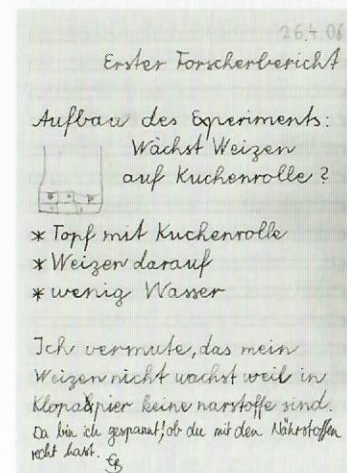 26.4.06
Erster Forscherbericht
Aufbau des Experiments:
Wächst Weizen
auf Kuchenrolle?
* Topf mit Kuchenrolle
* Weizen darauf
* wenig Wasser
Ich vermute, das mein
Weizen nicht wachst weil in
Klopapier keine narstoffe sind.
Da bin ich gespannt, ob du mit den Nährstoffen
recht hast.